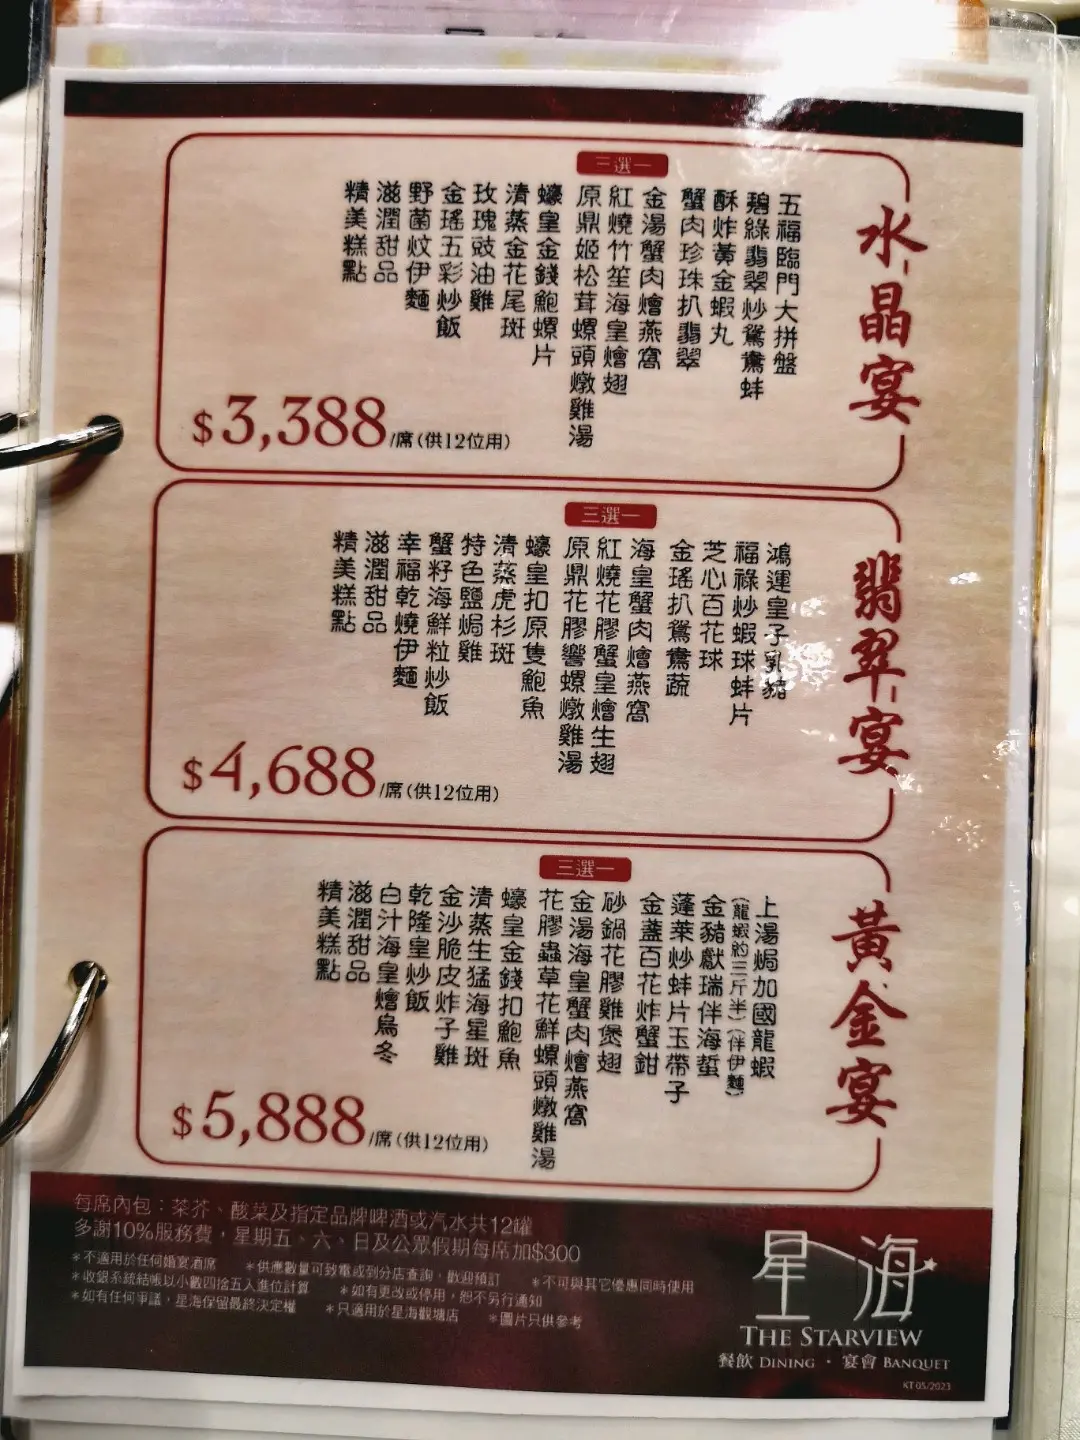 水晶宴
五福臨門大拼盤
碧綠翡翠炒鴛鴦蚌
酥炸黃金蝦丸
蟹肉珍珠扒翡翠
三選一
金湯蟹肉燴燕窩
紅燒竹笙海皇燴翅
原鼎姬松茸螺頭燉雞湯
蠔皇金錢鮑螺片
清蒸金花尾斑
玫瑰豉油雞
金瑤五彩炒飯
野菌炆伊麵
滋潤甜品
精美糕點
$3,388/席(供12位用)
翡翠宴
鴻運皇子乳豬
福祿炒蝦球蚌片
芝心百花球
金瑤扒鴛鴦蔬
三選一
海皇蟹肉燴燕窩
紅燒花膠蟹皇燴生翅
原鼎花膠響螺燉雞湯
蠔皇扣原隻鮑魚
清蒸虎杉斑
特色鹽焗雞
蟹籽海鮮粒炒飯
幸福乾燒伊麵
滋潤甜品
精美糕點
$4,688/席(供12位用)
黃金宴
上湯焗加國龍蝦
(龍蝦約三斤半)(伴伊麵)
金豬獻瑞伴海蜇
蓬萊炒蚌片玉帶子
金盞百花炸蟹鉗
三選一
砂鍋花膠雞煲翅
金湯海皇蟹肉燴燕窩
花膠蟲草花鮮螺頭燉雞湯
蠔皇金錢扣鮑魚
清蒸生猛海星斑
金沙脆皮炸子雞
乾隆皇炒飯
白汁海皇燴烏冬
滋潤甜品
精美糕點
$5,888/席(供12位用)
每席內包：茶芥、酸菜及指定品牌啤酒或汽水共12罐
多謝10%服務費，星期五、六、日及公眾假期每席加$300
*不適用於任何婚宴酒席 *供應數量可致電或到分店查詢，歡迎預訂 *不可與其它優惠同時使用
*收銀系統結帳以小數四捨五入進位計算 *如有更改或停用，恕不另行通知
*如有任何爭議，星海保留最終決定權 *只適用於星海觀塘店 *圖片只供參考
星海
THE STARVIEW
餐飲 DINING · 宴會 BANQUET
KT 05/2023